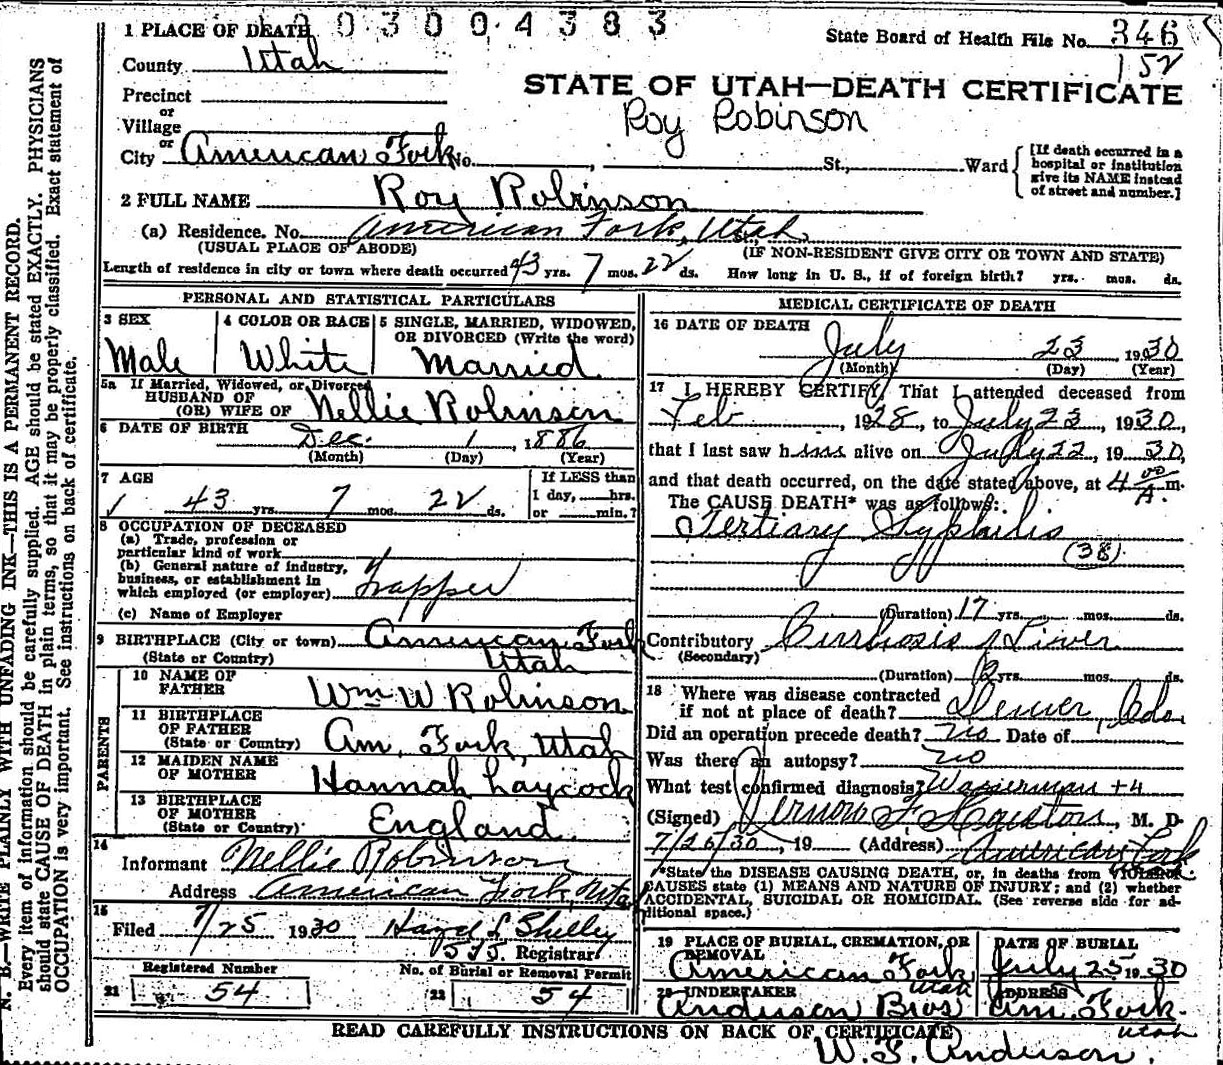 0 0 3 0 0 4 3 8 3
1 PLACE OF DEATH
State Board of Health File No. 346
152
County Utah
STATE OF UTAH—DEATH CERTIFICATE
Precinct
or
Village
Roy Robinson
or
City American Fork No. , St., Ward
[If death occurred in a hospital or institution give its NAME instead of street and number.]
2 FULL NAME Roy Robinson
(a) Residence. No. American Fork, Utah St.,
(USUAL PLACE OF ABODE) (IF NON-RESIDENT GIVE CITY OR TOWN AND STATE)
Length of residence in city or town where death occurred 43 yrs. 7 mos. 22 ds. How long in U. S., if of foreign birth? yrs. mos. ds.
PERSONAL AND STATISTICAL PARTICULARS
3 SEX Male
4 COLOR OR RACE White
5 SINGLE, MARRIED, WIDOWED, OR DIVORCED (Write the word) Married
5a If Married, Widowed, or Divorced
HUSBAND OF
(OR) WIFE OF Nellie Robinson
6 DATE OF BIRTH Dec. 1, 1886
(Month) (Day) (Year)
7 AGE
43 yrs. 7 mos. 22 ds.
If LESS than
1 day, hrs.
or min.?
8 OCCUPATION OF DECEASED
(a) Trade, profession or
particular kind of work
(b) General nature of industry,
business, or establishment in
which employed (or employer) Trapper
(c) Name of Employer
9 BIRTHPLACE (City or town) American Fork
(State or Country) Utah
PARENTS
10 NAME OF
FATHER Wm W Robinson
11 BIRTHPLACE
OF FATHER
(State or Country) Am. Fork, Utah
12 MAIDEN NAME
OF MOTHER Hannah Laycock
13 BIRTHPLACE
OF MOTHER
(State or Country) England
14
Informant Nellie Robinson
Address American Fork, Utah
15
Filed 7/25 1930 Hazel L Shelley
Registrar
Registered Number
21 54
No. of Burial or Removal Permit
22 54
MEDICAL CERTIFICATE OF DEATH
16 DATE OF DEATH
July 23, 1930
(Month) (Day) (Year)
17 I HEREBY CERTIFY, That I attended deceased from
Feb, 1928, to July 23, 1930,
that I last saw him alive on July 22, 1930,
and that death occurred, on the date stated above, at 4 00 A. m.
The CAUSE DEATH* was as follows:
Tertiary Syphilis
(38)
(Duration) 17 yrs. mos. ds.
Contributory Cirrhosis of Liver
(Secondary)
(Duration) 2 yrs. mos. ds.
18 Where was disease contracted
if not at place of death? Denver, Colo
Did an operation precede death? no Date of
Was there an autopsy? no
What test confirmed diagnosis? Wasserman +4
(Signed) Vernon F Houston, M. D.
7/26/30, 19 (Address) American Fork
*State the DISEASE CAUSING DEATH, or, in deaths from VIOLENT
CAUSES state (1) MEANS AND NATURE OF INJURY; and (2) whether
ACCIDENTAL, SUICIDAL OR HOMICIDAL. (See reverse side for additional space.)
19 PLACE OF BURIAL, CREMATION, OR
REMOVAL
American Fork
Utah
DATE OF BURIAL
July 25 1930
20 UNDERTAKER
Anderson Bros
ADDRESS
Am. Fork.
Utah
READ CAREFULLY INSTRUCTIONS ON BACK OF CERTIFICATE
W. F. Anderson.
N. B.—WRITE PLAINLY WITH UNFADING INK—THIS IS A PERMANENT RECORD.
Every item of information should be carefully supplied. AGE should be stated EXACTLY. PHYSICIANS
should state CAUSE OF DEATH in plain terms, so that it may be properly classified. Exact statement of
OCCUPATION is very important. See instructions on back of certificate.